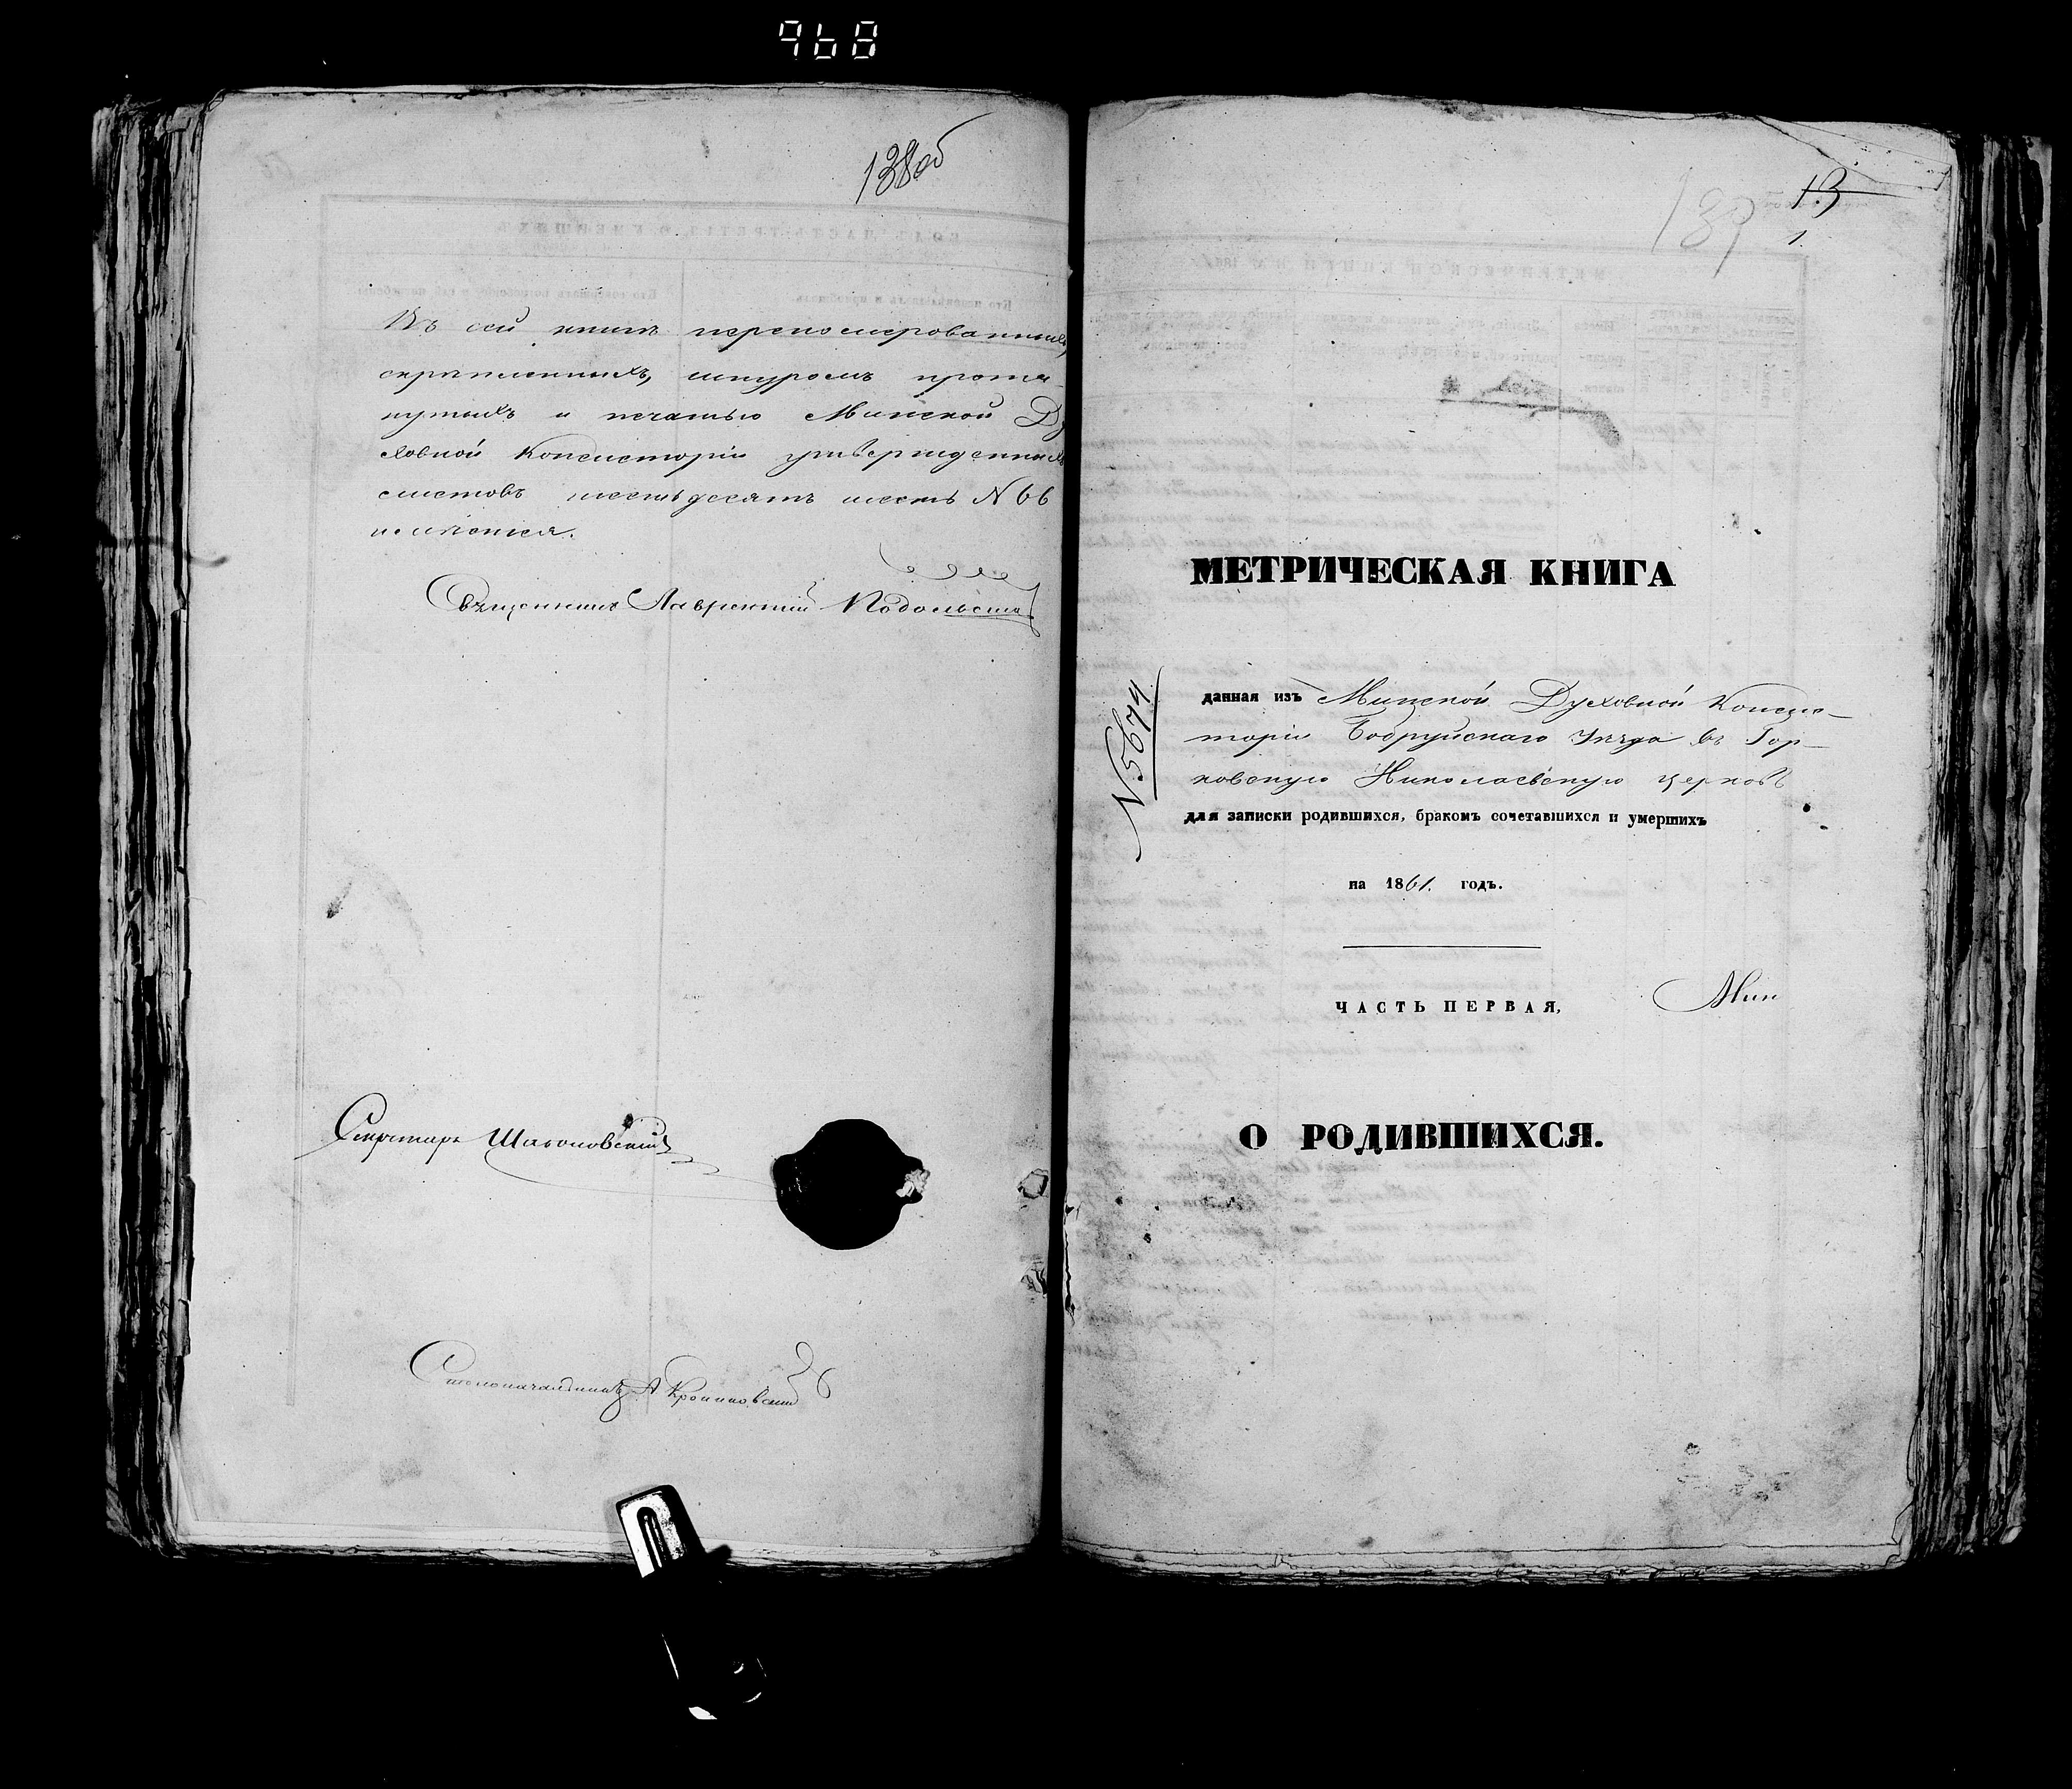 968
138 об
Въ сей книги переномерованныхъ,
скрепленныхъ, шнуромъ протя-
нутыхъ и печатью Минской Ду
ховной Консисторіи утвержденныхъ
листовъ шестьдесятъ шесть N 66
имѣется.
Священникъ Лаврентій Подольскій
Секретарь
Столоначальникъ А
139
13
1
МЕТРИЧЕСКАЯ КНИГА
N 5674
данная изъ Минской Духовной Консис-
торіи Бобруйскаго Уѣзда въ Гор-
ковскую Николаевскую церковь
для записки родившихся, бракомъ сочетавшихся и умершихъ
на 1861. годъ.
ЧАСТЬ ПЕРВАЯ,
Мин
О РОДИВШИХСЯ.